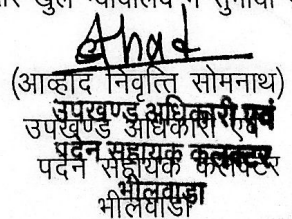 खुले न्यायालय में सुनाया
(आव्हाद निवृत्ति सोमनाथ)
उपखण्ड अधिकारी एवं
उपखण्ड अधिकारी एवं
पदेन सहायक कलक्टर
पदेन सहायक कलक्टर
भीलवाड़ा
भीलवाड़ा